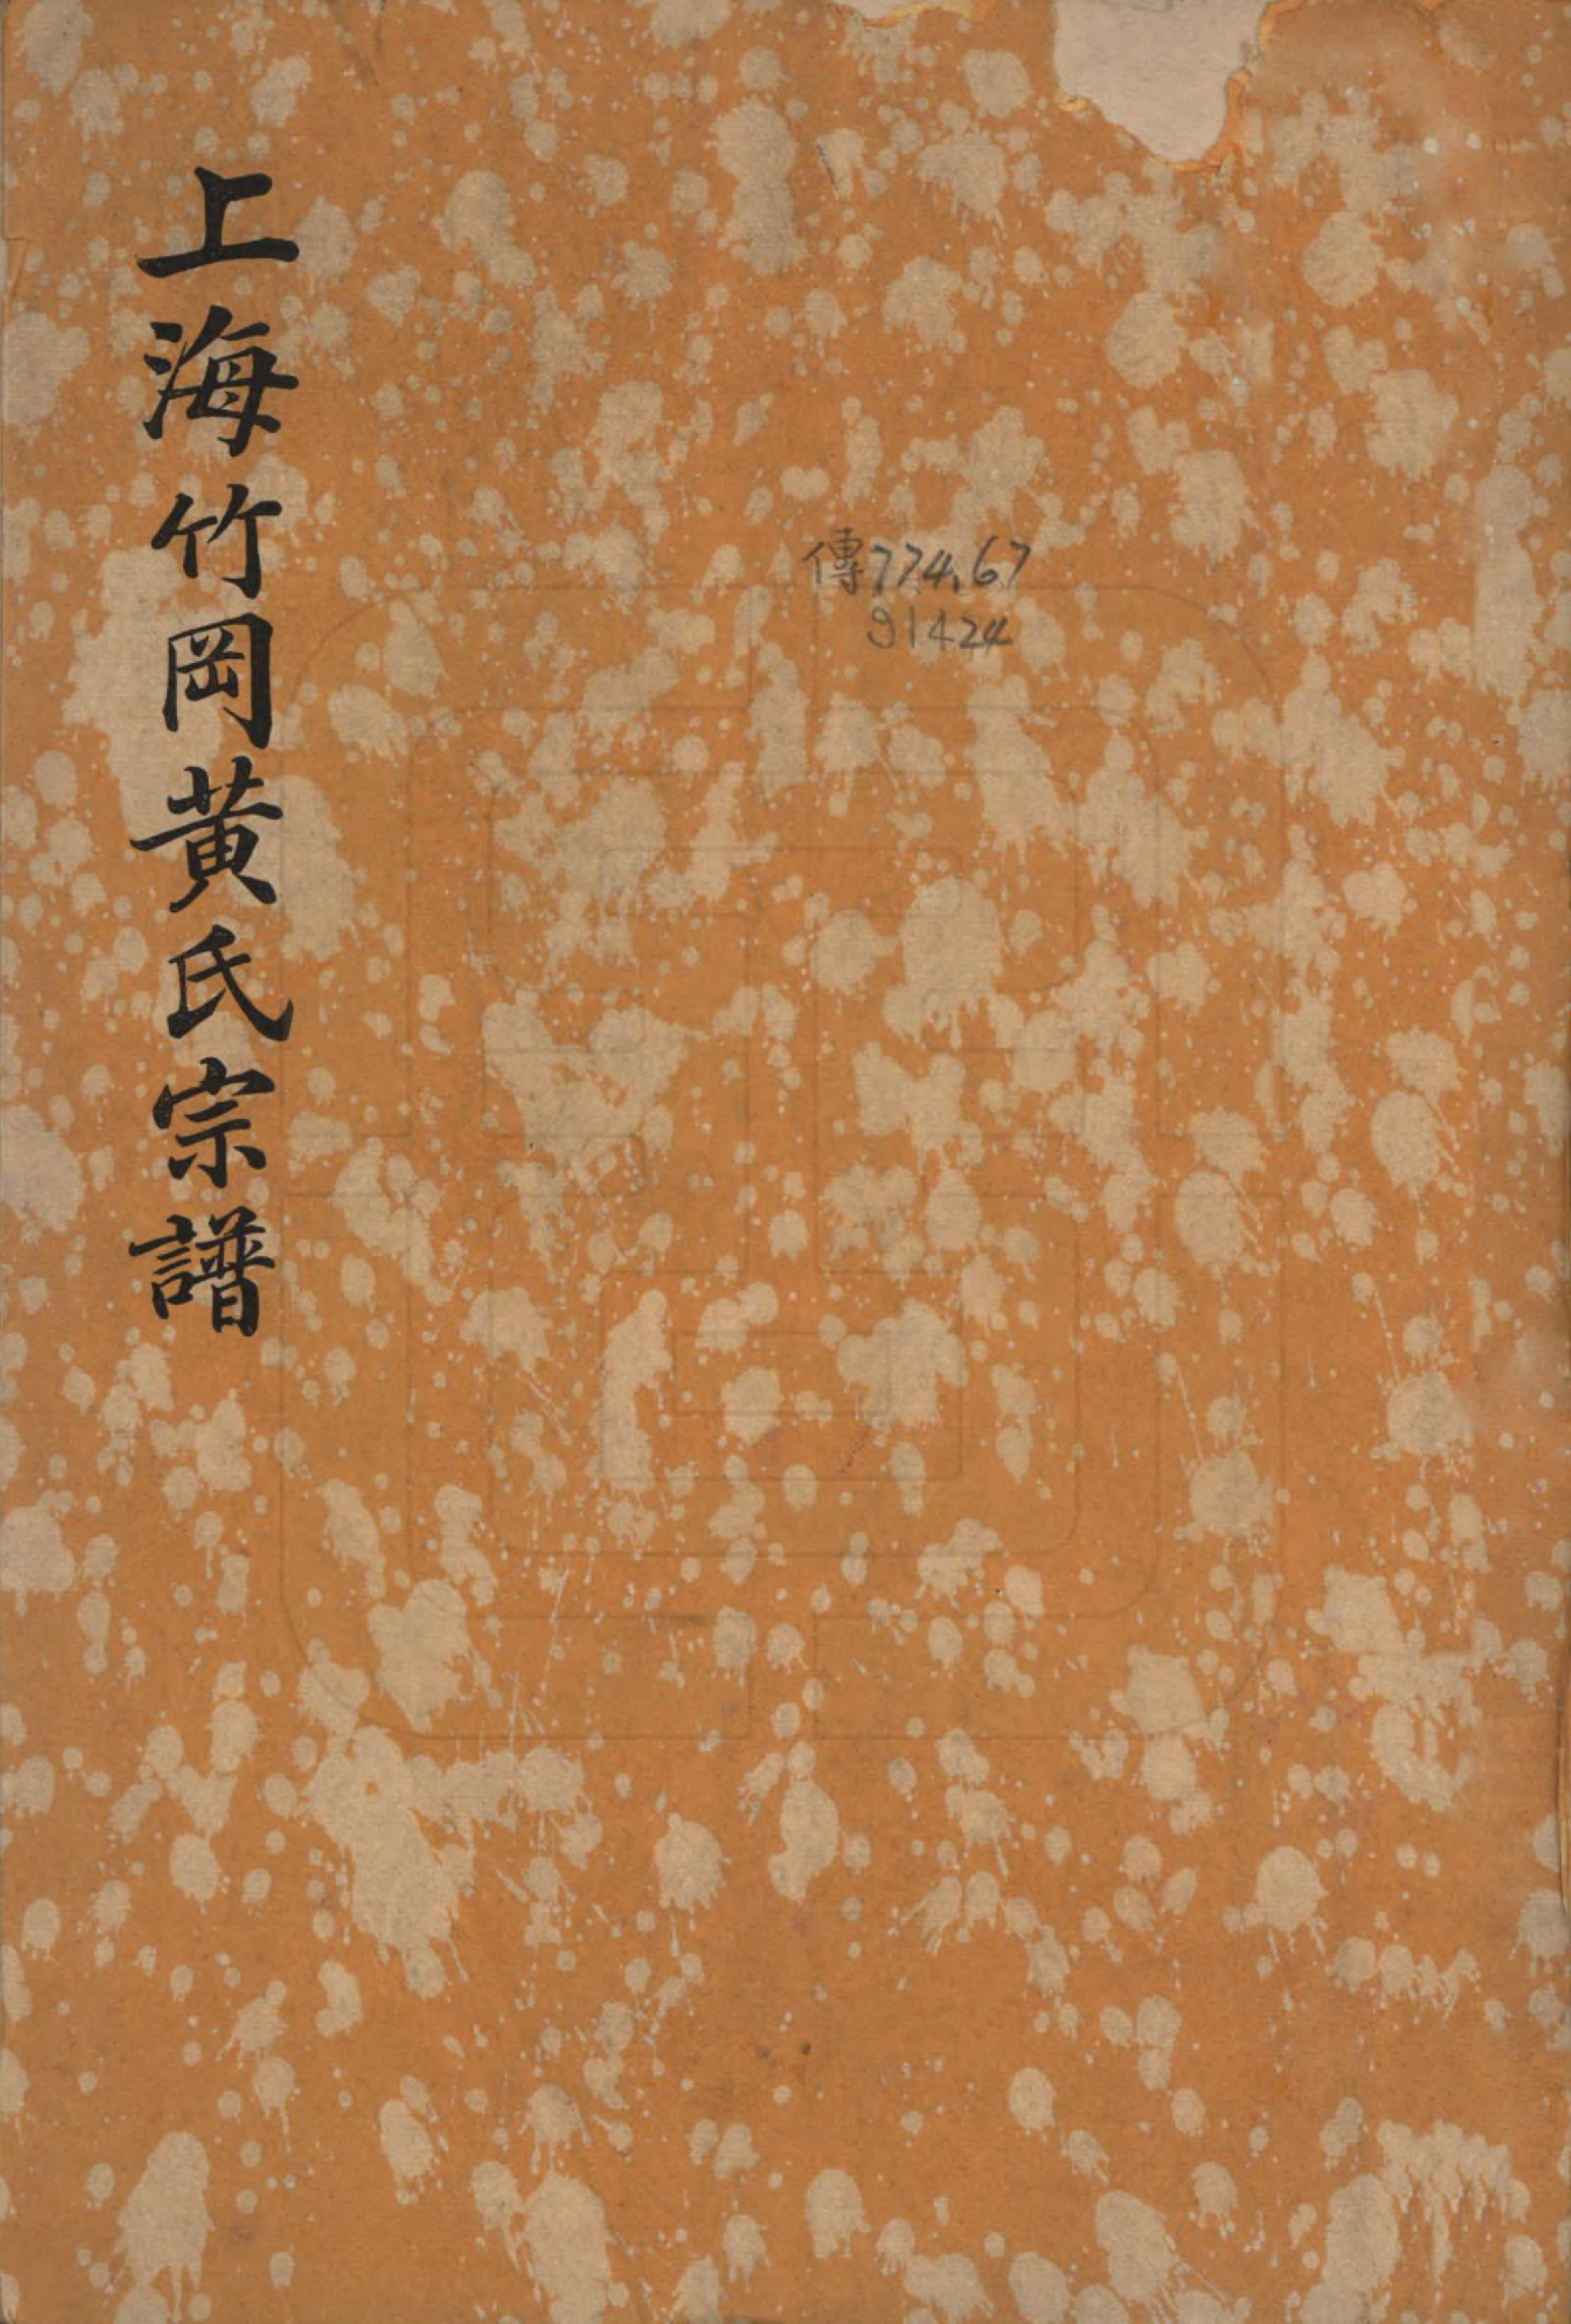 上海竹岡黃氏宗譜
傳774.67
91424